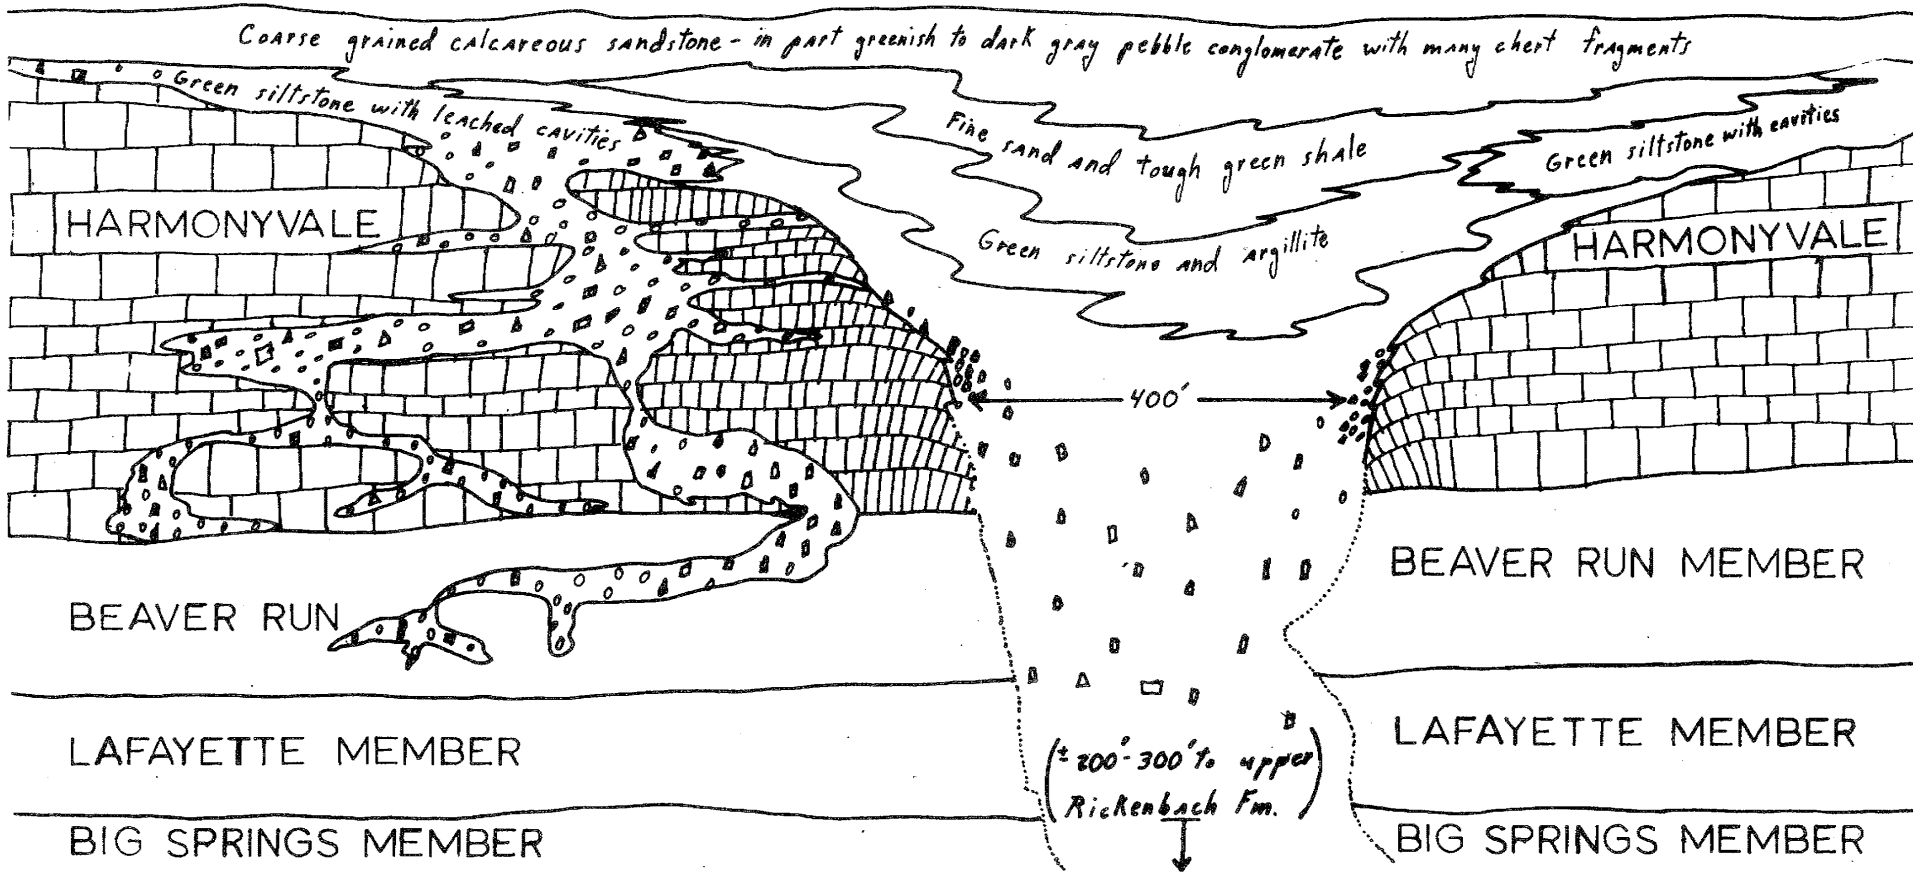 Coarse grained calcareous sandstone - in part greenish to dark gray pebble conglomerate with many chert fragments
Green siltstone with leached cavities
Fine sand and tough green shale
Green siltstone with cavities
Green siltstone and argillite
HARMONYVALE
HARMONYVALE
400'
BEAVER RUN
BEAVER RUN MEMBER
LAFAYETTE MEMBER
LAFAYETTE MEMBER
(± 200'-300' to upper
Rickenbach Fm.)
BIG SPRINGS MEMBER
BIG SPRINGS MEMBER